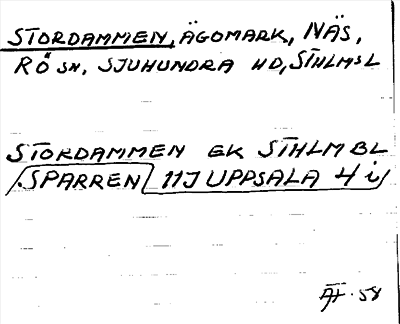 STORDAMMEN, ÄGOMARK, NÄS,
RÖ SN, SJUHUNDRA HD, STHLMSL
STORDAMMEN EK STHLM BL
SPARREN 11J UPPSALA 4 i
ÄT. 58